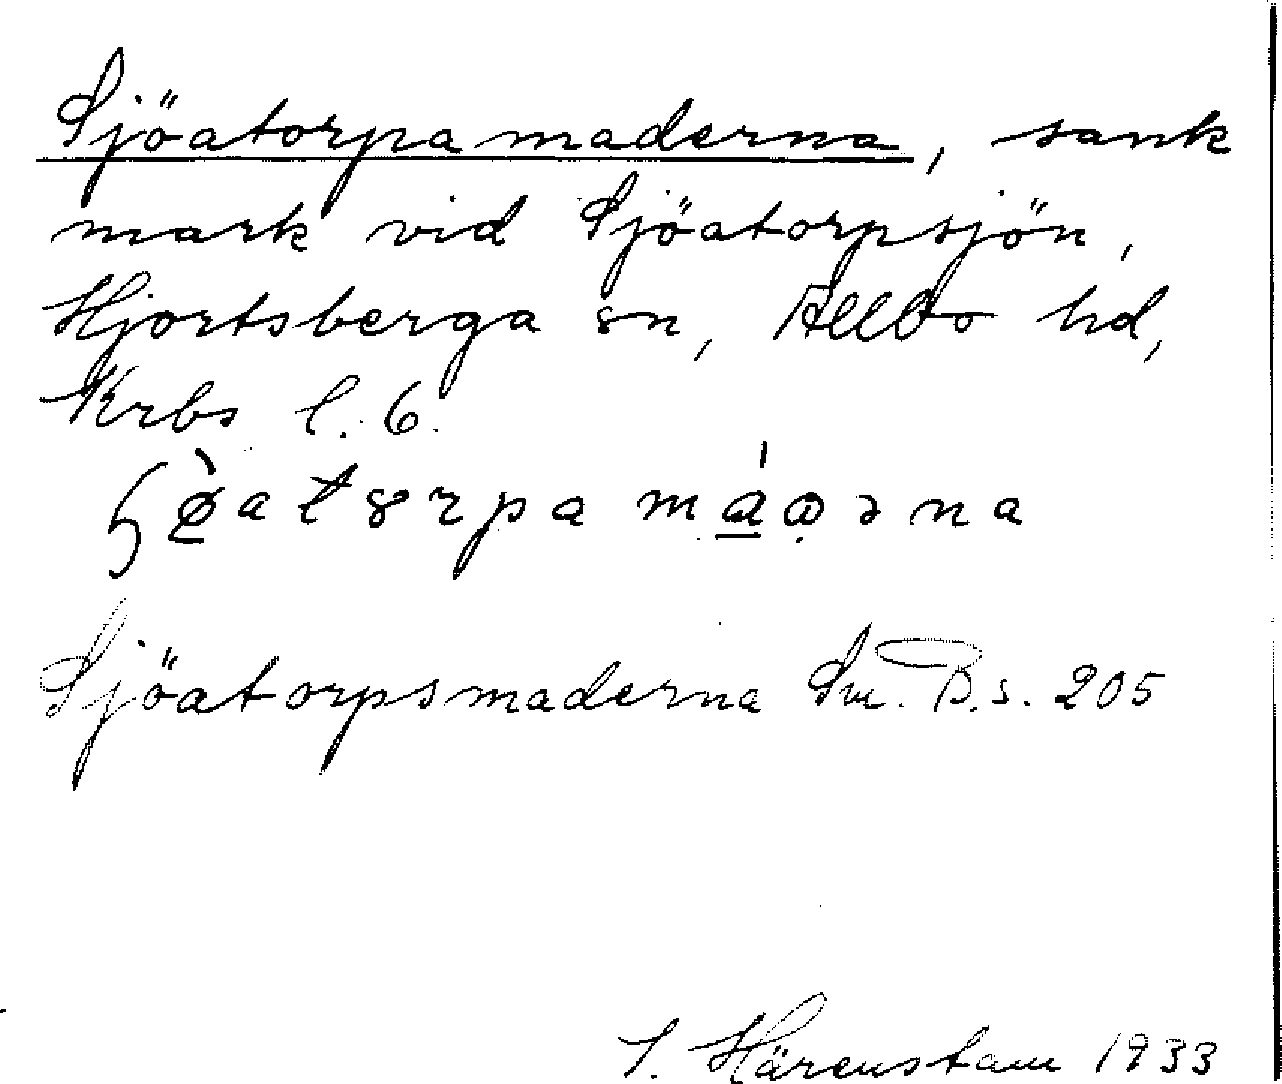 Sjöatorpamaderna, sank
mark vid Sjöatorpsjön,
Hjortsberga sn, Allbo hd,
Krbs l. 6.
Sjöatorpsmaderna Sm. B. s. 205
Härenstam 1933